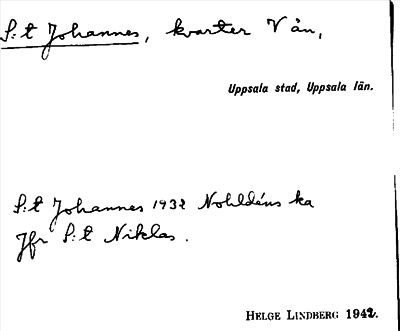 S:t Johannes, kvarter V ån,
Uppsala stad, Uppsala län.
S:t Johannes 1932 Nohldéns ka
Jfr S:t Niklas.
HELGE LINDBERG 1942.